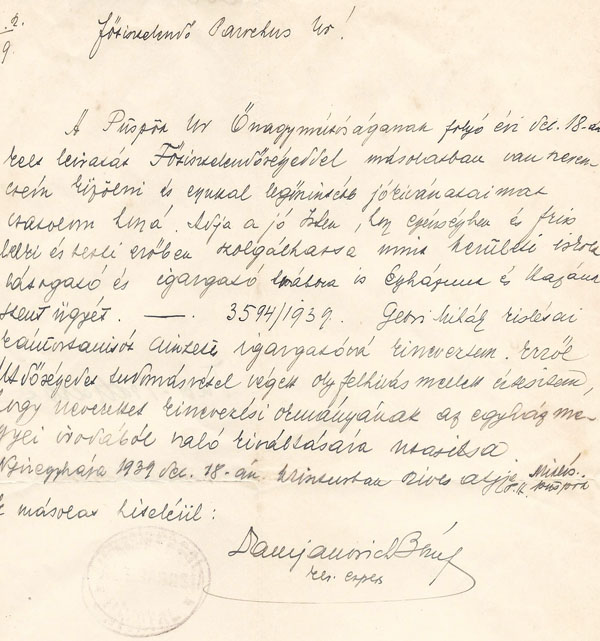 Főtisztelendő Parochus Úr!
A Püspök Úr Őnagyméltóságának folyó évi dec. 18-án
kelt leiratát Főtisztelendőségeddel másolatban van szeren-
csém közölni és egyuttal legőszintébb jókivánataimat
csatolom hozzá. Adja a jó Isten, hogy egészségben és friss
lelki és testi erőben szolgálhassa mint kerületi iskola
látogató és igazgató továbbra is Egyházunk és Hazánk
szent ügyét. — 3594/1939. Gebri Mihály
kántortanítót cimzetes igazgatóvá kineveztem. Erről
tudomásvétel végett oly felhivás mellett értesítem,
hogy nevezettet kinevezési okmányának az egyházme-
gyei irodából való kiváltására utasítsa
Nyíregyháza 1939 dec. 18-án. Krisztusban szíves atyja Miklós s.k. püspök
A másolat hiteléül:
Damjanovich
ker. esperes